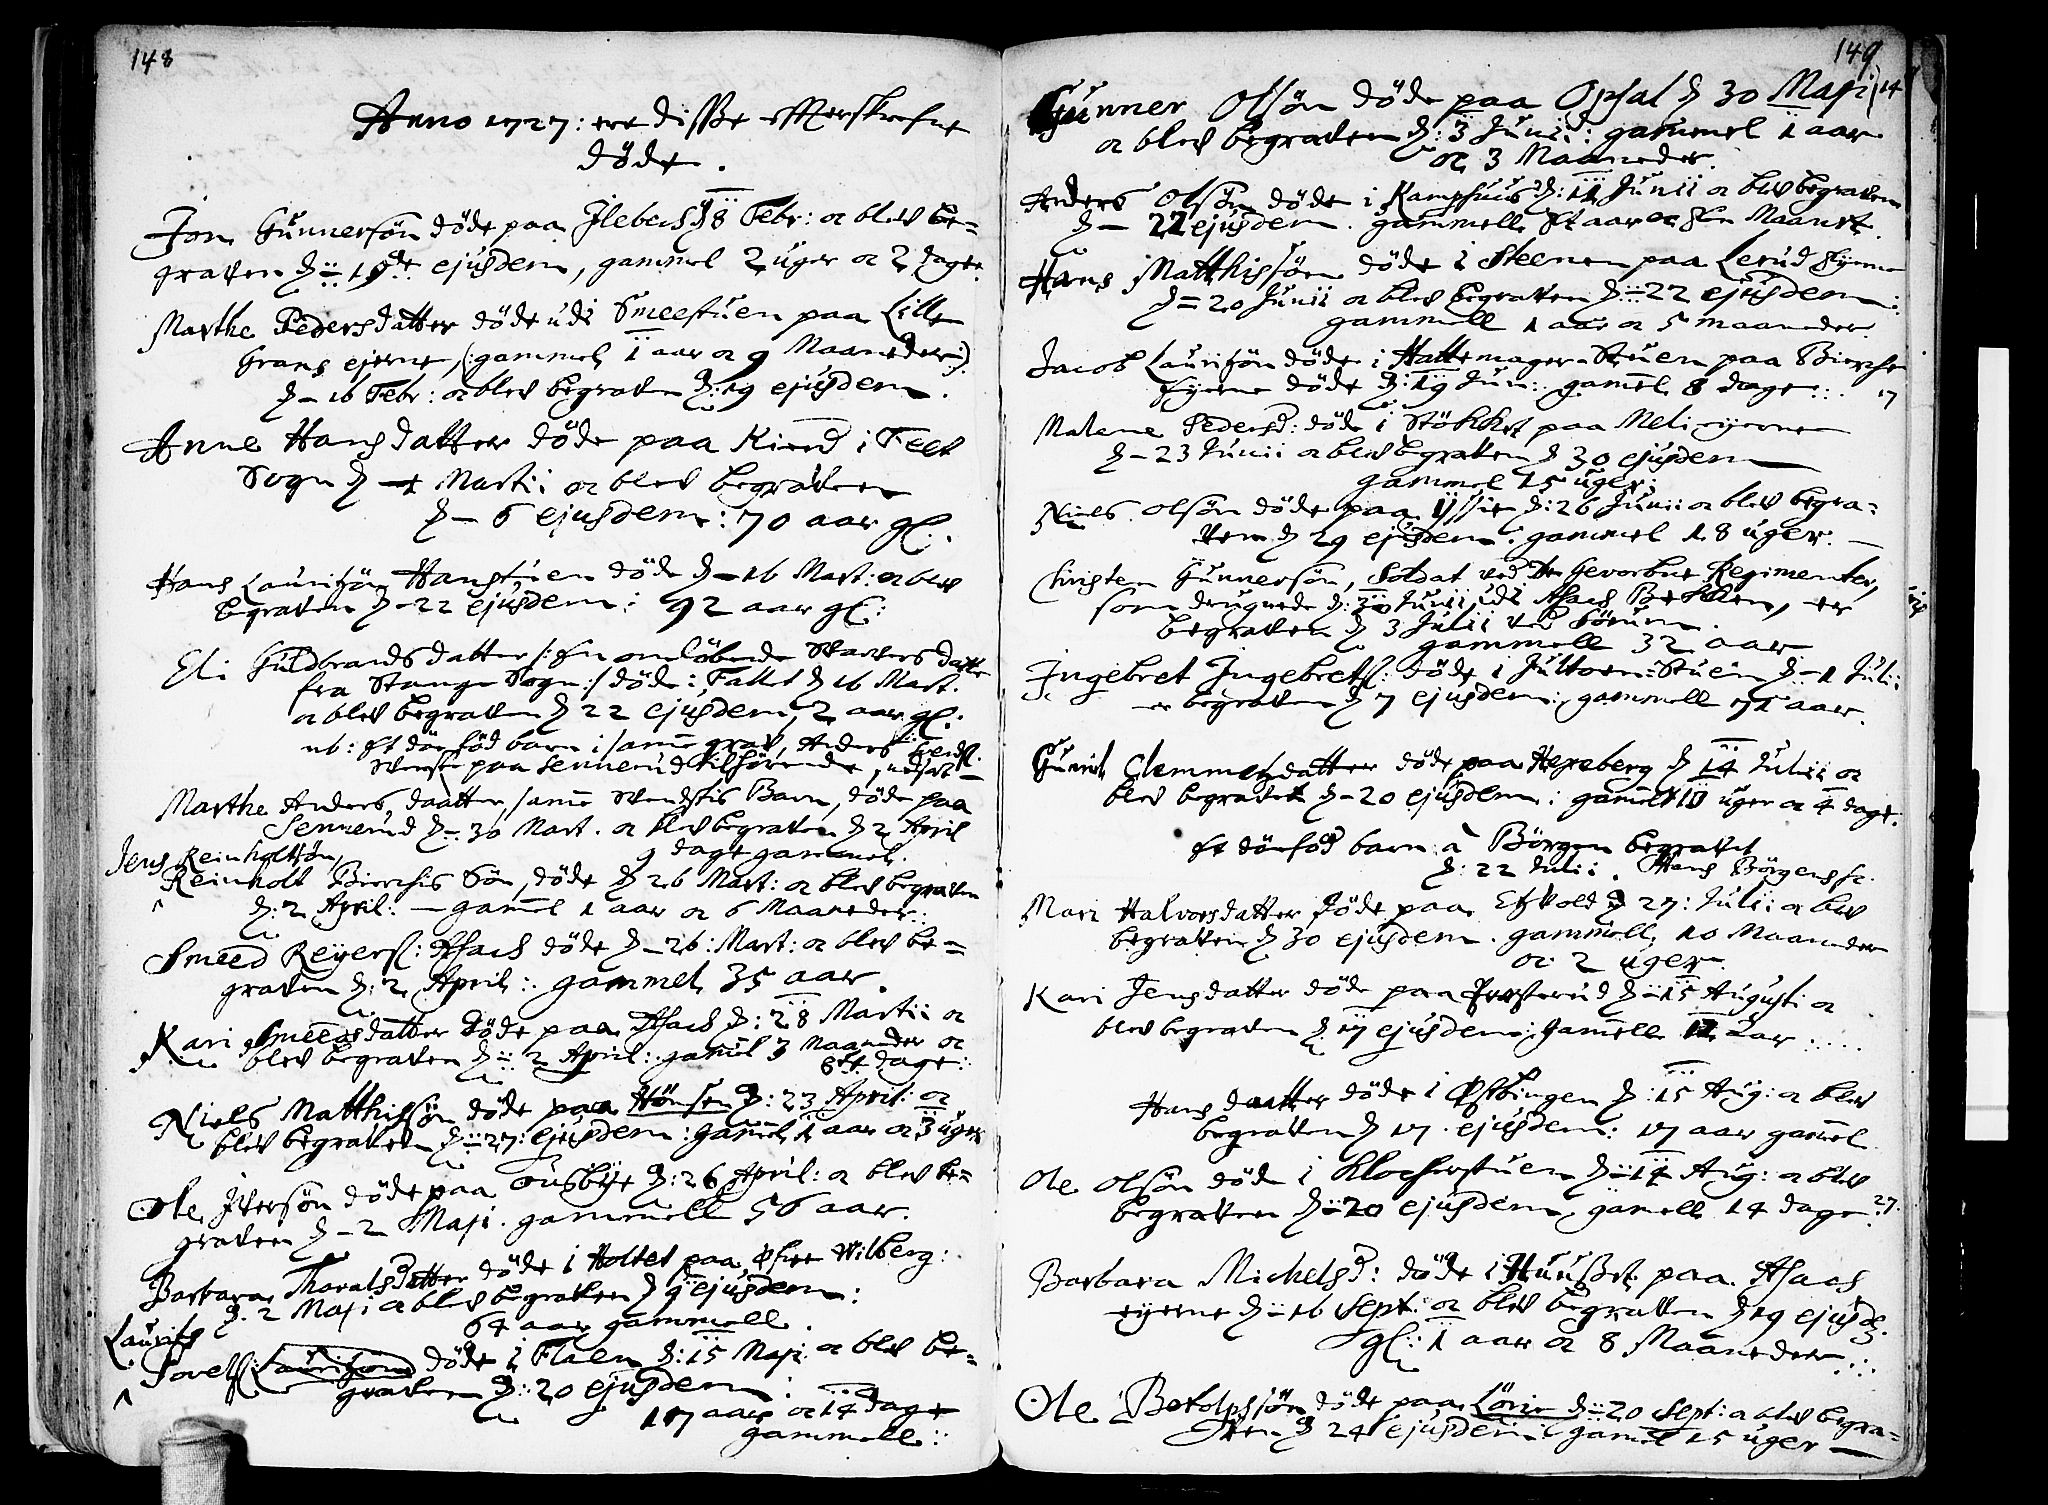 148
Anno 1727: ere disse effterskrefne
döde.
Jon Gunnersön döde paa Ilebech 18 Febr: oc blev be=
graven d: 19de ejusdem, gammel 2 uger oc 2 dage.
Marthe Pedersdatter döde udi Smeestuen paa Lille
Grans ejerne, (: gammel 1 aar oc 9 Maaneder :)
d – 16 Febr: oc blev begraven d: 19 ejusdem.
Anne Hansdatter döde paa Kierd i Feet
Sogn d – 1 Martii oc blev begraven
d – 6 ejusdem: 70 aar gl.
Hans Lauritzön Hanstuen döde d – 16 Mart: oc blev
begraven d – 22 ejusdem: 92 aar gl:
Eli Guldbrandsdatter /: en omlöbende datter
fra Stange Sogn :/ döde i Fallet d 16 Mart.
oc blev begraven d 22 ejusdem, 2 aar gl:
nb: et dödföd barn i samme grav, Anders
paa Sennerud tilhörende,
Marthe Anders daatter, samme Barn, döde paa
Sennerud d – 30 Mart. oc blev begraven d 2 April
9 dage gammel.
Jens Reinholtsön,
Reinholt Bierchis Sön, döde d 26 Mart: oc blev begraven
d: 2 April: – gammel 1 aar oc 6 Maaneder:
Smeed Reyersl: Asach döde d – 26: Mart: oc blev be=
graven d: 2 April: gammel 35 aar.
Kari Smeedsdatter döde paa Asach d: 28 Martii oc
blev begraven d: 2 April: gamel 3 Maaneder oc
dage:
Niels Matthissön döde paa Hönsen d: 23 April: oc
blev begraven d: 27: ejusdem: gamel 1 aar oc 3 uger
Ole Iversön döde paa Tousbye d: 26 April: oc blev be=
graven d – 2 Maji. gammell 56 aar.
Barbara Thoralsdatter döde i Holtet paa Öfre Wilberg:
d. 2 Maji oc blev begraven d 9 ejusdem:
64 aar gammell.
Lauritz
Povelsl: Lauritzön döde i Flaen d: 15 Maji oc blev be=
graven d: 20 ejusdem:
17 aar oc 14 dage
gammell:
149
Gunner Olsön döde paa Opsal d 30 Maji 14
oc blev begraven d: 3 Junii: gammel 1 aar
oc 3 Maaneder.
Anders Olsön döde i Kamphuus d: 14 Junii oc blev begraven
d – 22 ejusdem. gammell Et aar oc En Maanet.
Hans Matthissön döde i Steenen paa Lerud Eyerne
d = 20 Junii oc blev begraven d: 22 ejusdem:
gammell 1 aar oc 5 maaneder
Jacob Lauritzön döde i Hattemager Stuen paa Bierche
Eyerne döde d: 19 Jun: gamel 8 dage: 17
Malene Pedersd: döde i Stökket paa Meli eyerne
d – 23 Junii oc blev begraven d 30 ejusdem
gammel 15 uger:
Niels Olsön döde paa d: 26 Junii oc blev begra=
ven d 29 ejusdem: gammel 18 uger. –
Christen Gunnersön, Soldat ved de Gevorbne Regimenter,
som drugnede d: 30 Junii udi Asach Bekken, er
begraven d 3 Julii ved Sörum.
gammell 32 aar
Ingebret Ingebretsl: döde i Stuen d – 1 Juli:
er begraven d 7 ejusdem: gammell 71 aar.
Gunil Clemmetzdatter döde paa Hexeberg d 14 Julii oc
blev begravet d – 20 ejusdem: gamel 10 uger oc 4 dage.
Et dödföd barn a Börgen begravet
d: 22 Julii. Hans Börgens
Mari Halvorsdatter döde paa d 27: Julii oc blev
begraven d 30 ejusdem. gammell 10 Maaneder
oc 2 uger.
Kari Jensdatter döde paa d: 15 Augusti oc
blev begraven d 17 ejusdem: gamell 12 aar:
Hans daatter döde i Östbingen d: 15 Aug: oc blev
begraven d 17. ejusdem: 17 aar gamel
Ole Olsön döde i Klocherstuen d: 14 Aug: oc blev
begraven d: 20 ejusdem, gamell 14 dage. 27.
Barbara Michelsd: döde i Huuset paa Asach
eyerne d: 16 Sept: oc blev begraven d 19 ejusd.
gl: 1 aar oc 8 Maaneder:
Ole Botolphsön döde paa Lörie d: 20 Sept: oc blev begra=
ven d 24 ejusdem: gamel 15 uger –